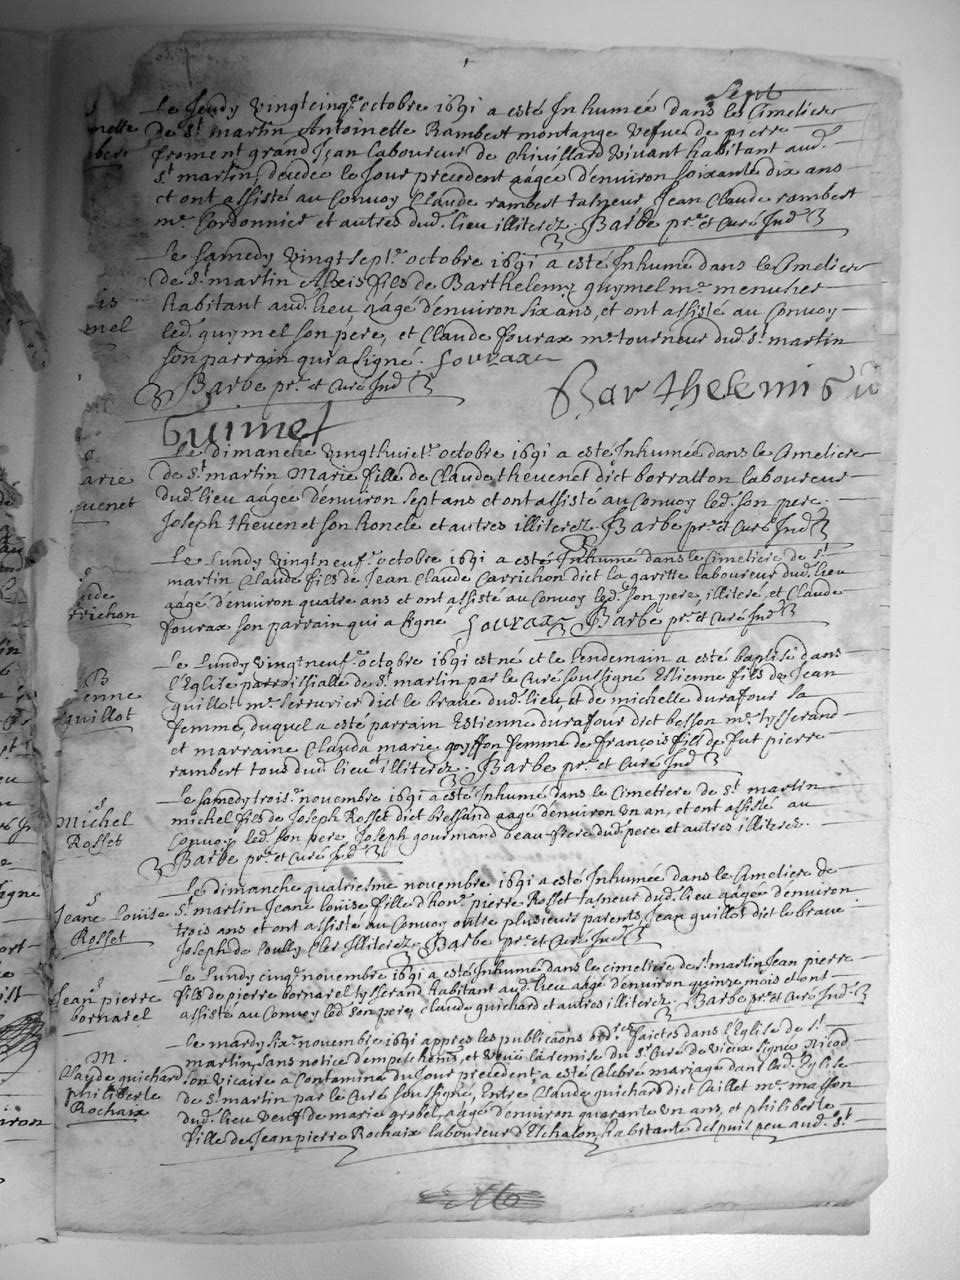 Sept
Le Jeudy vingtcinq.e octobre 1691 a esté Inhumée dans le Cimetiere
de S.t martin Antoinette Rambert montange vefue de pierre
froment grand Jean laboureur de Chivillard vivant habitant aud.
S.t martin, decedée le Jour precedent aagée d'enuiron soixante dix ans
et ont assisté au Convoy Claude rambert tasneur Jean Claude rambert
m.e Cordonnier et autres dud. lieu illiterez. Barbe pr.e et Curé Ind
Le Samedy vingtsept.e octobre 1691 a esté Inhumé dans le Cimetiere
de S.t martin Alexis fils de Barthelemy guymel m.e menusier
habitant aud. lieu aagé d'enuiron six ans, et ont assisté au Convoy
led. guymel son pere, et Claude Jourax m.e tourneur dud. S.t martin
son parrain qui a signé. Jourax
Barbe pr.e et Curé Ind Barthelemis
Guimet
Le dimanche vingthuict.e octobre 1691 a esté Inhumée dans le Cimetiere
de S.t martin Marie fille de Claude theuenet dict borratton laboureur
dud. lieu aagée d'enuiron sept ans et ont assisté au Convoy led. son pere,
Joseph theuenet son honcle et autres illiterez. Barbe pr.e et Curé Ind
Le Lundy vingtneuf.e octobre 1691 a esté Inhumé dans le Cimetiere de S.t
martin Claude fils de Jean Claude Carrichon dict la garitte laboureur dud. lieu
aagé d'enuiron quatre ans et ont assisté au Convoy led. son pere, illiteré, et Claude
Jourax son parrain qui a signé Jourax Barbe pr.e et Curé Ind
Le Lundy vingtneuf.e octobre 1691 est né et le lendemain a esté baptisé dans
l'Eglise parroissialle de S.t martin par le Curé soussigné Estienne fils de Jean
quillot m.e serrurier dict le braue dud. lieu et de michelle durafour sa
femme, duquel a esté parrain Estienne durafour dict besson m.e tysserand
et marraine Clauda marie goyffon femme de françois fils de fut pierre
rambert tous dud. lieu et illiterez. Barbe pr.e et Curé Ind
Michel
Rosset
Le samedy trois.e novembre 1691 a esté Inhumé dans le Cimetiere de S.t martin
michel fils de Joseph Rosset dict bressand aagé d'enuiron vn an, et ont assisté au
Convoy led. son pere, Joseph gourmand beau-frere dud. pere et autres illiterez.
Barbe pr.e et Curé Ind
Jeane Louise
Rosset
Le dimanche quatriesme novembre 1691 a esté Inhumée dans le Cimetiere de
S.t martin Jeane louise fille d'hon.e pierre Rosset tasneur dud. lieu aagée d'enuiron
trois ans et ont assisté au Convoy outre plusieurs parents, Jean quillot dict le braue
Joseph de Illiterez. Barbe pr.e et Curé Ind
Jean pierre
bornarel
Le Lundy cinq.e novembre 1691 a esté Inhumé dans le cimetiere de S.t martin Jean pierre
fils de pierre bornarel tysserand habitant aud. lieu aagé d'enuiron quinze mois et ont
assisté au Convoy led. son pere, Claude guichard et autres illiterez. Barbe pr.e et Curé Ind.
M.
Claude guichard
philiberte
Rochaix
Le mardy six.e novembre 1691 appres les publicaons faictes dans l'Eglise de S.t
martin, sans notice d'empeschem.t, et veue la remise du S.r Curé de Vieux signée Nicod
son vicaire a Contamine du Jour precedent, a esté Celebré mariage dans lad. Eglise
de S.t martin par le Curé soussigné, Entre Claude guichard dict Caillet m.e masson
dud. lieu veuf de marie grobel, aagé d'enuiron quarante vn ans, et philiberte
fille de Jean pierre Rochaix laboureur d'Echalon, habitante despuis peu aud. S.t